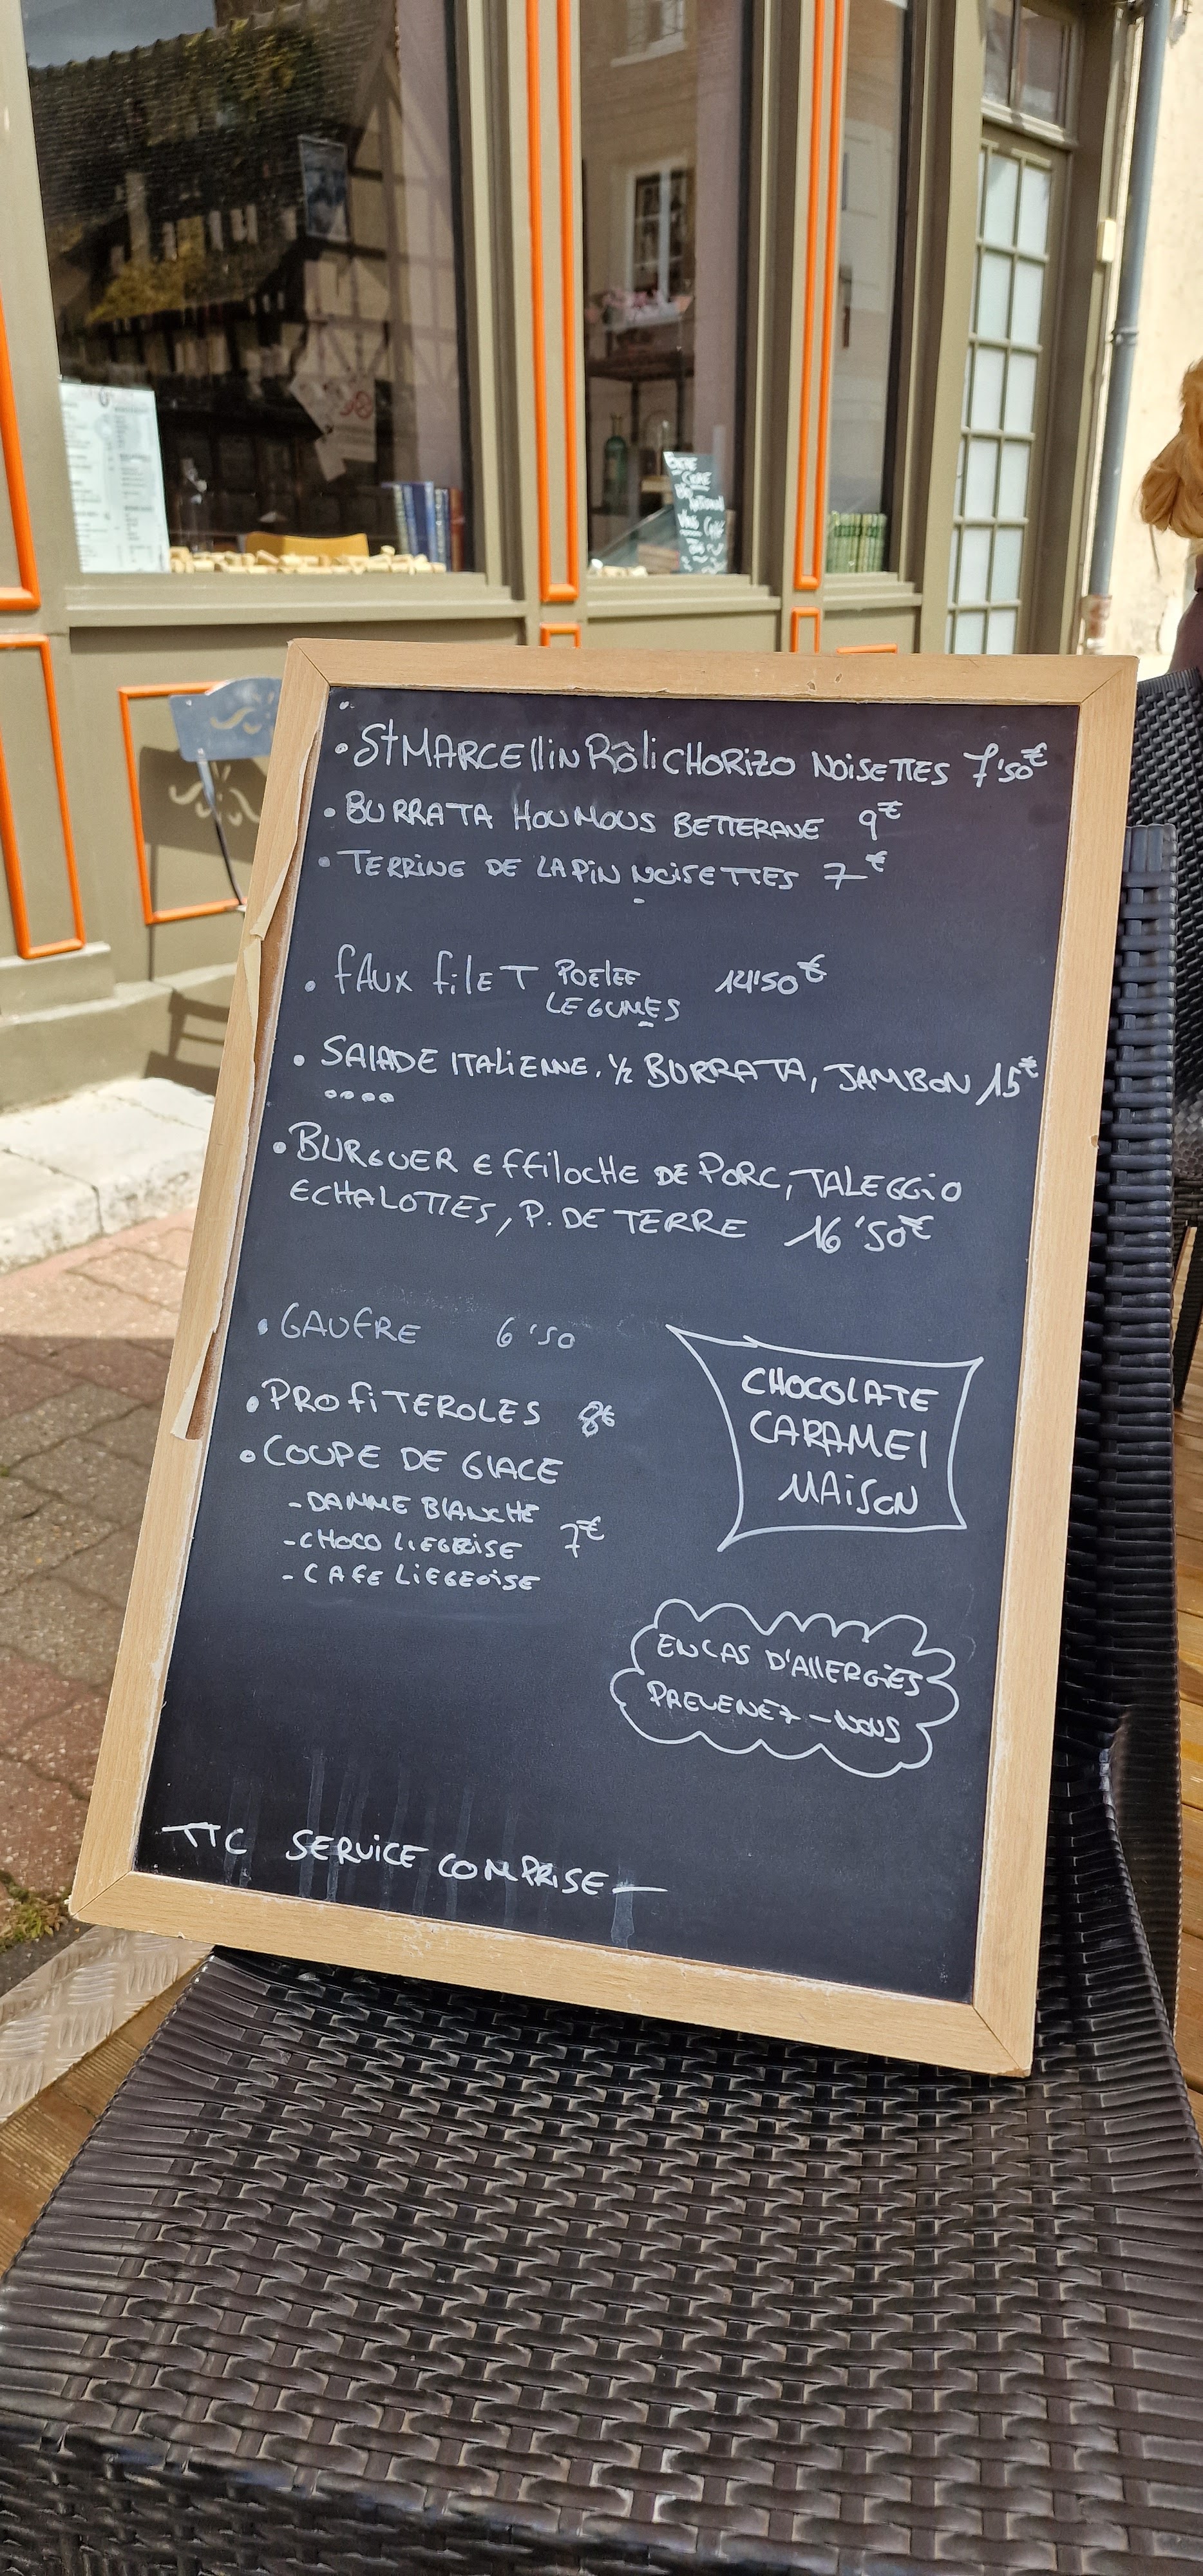 • St MARCEllin Rôli CHORIZO NOISETTES 7'50€
• BURRATA HOUMOUS BETTERAVE 9€
• TERRINE DE LAPIN NOISETTES 7€
• fAUX filET POElEE 14'50€
LEGUMES
• SALADE ITALIENNE. 1/2 BURRATA, JAMBON 15€
• BURGUER EffilOCHE DE PORC, TALEGGIO
ECHALOTTES, P. DE TERRE 16'50€
• GAUFRE 6'50
• PROfiTEROLES 8€
• COUPE DE GLACE
- DAMME BLANCHE
- CHOCO LIEGEOISE 7€
- CAFE LIEGEOISE
CHOCOLATE
CARAMEl
MAISON
EN CAS D'AllERGIES
PREVENEZ-NOUS
TTC SERVICE COMPRISE —